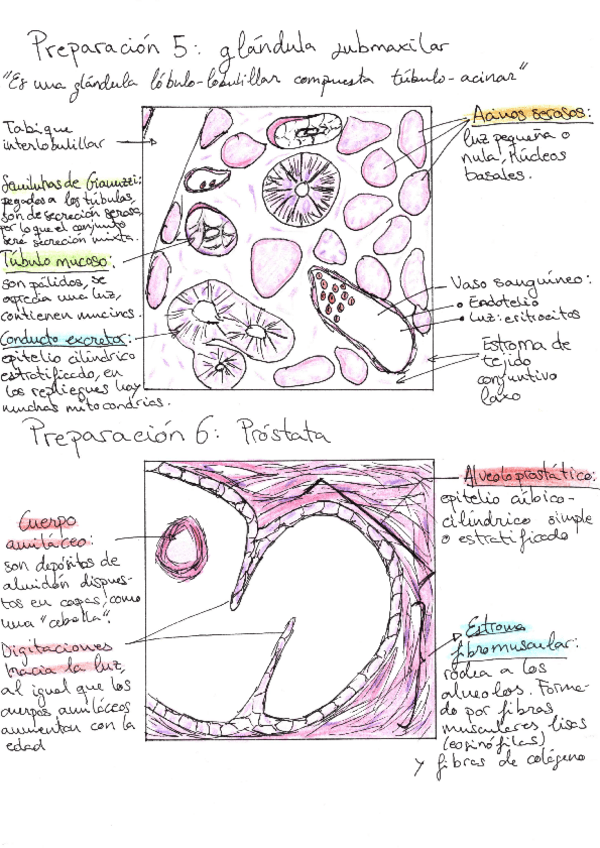 Preparación 5: glándula submaxilar
"Es una glándula lóbulo-lobulillar compuesta túbulo-acinar"
Tabique
interlobulillar
Semilunas de Gianuzzi:
pegados a los túbulos,
son de secreción serosa,
por lo que el conjunto
será secreción mixta.
Túbulo mucoso:
son pálidos, se
aprecia una luz,
contienen mucinas.
Conducto excretor:
epitelio cilíndrico
estratificado, en
los repliegues hay
muchas mitocondrias.
Acinos serosos:
luz pequeña o
nula, Núcleos
basales.
Vaso sanguíneo:
• Endotelio
• Luz: eritrocitos
Estroma de
tejido
conjuntivo
laxo
Preparación 6: Próstata
Cuerpo
amiláceo:
son depósitos de
almidón dispues-
tos en capas, como
una "cebolla".
Digitaciones
hacia la luz,
al igual que los
cuerpos amiláceos
aumentan con la
edad
Alveolo prostático:
epitelio cúbico-
cilíndrico simple
o estratificado
Estroma
fibromuscular:
rodea a los
alveolos. Forma-
do por fibras
musculares lisas
(eosinófilas)
y fibras de colágeno